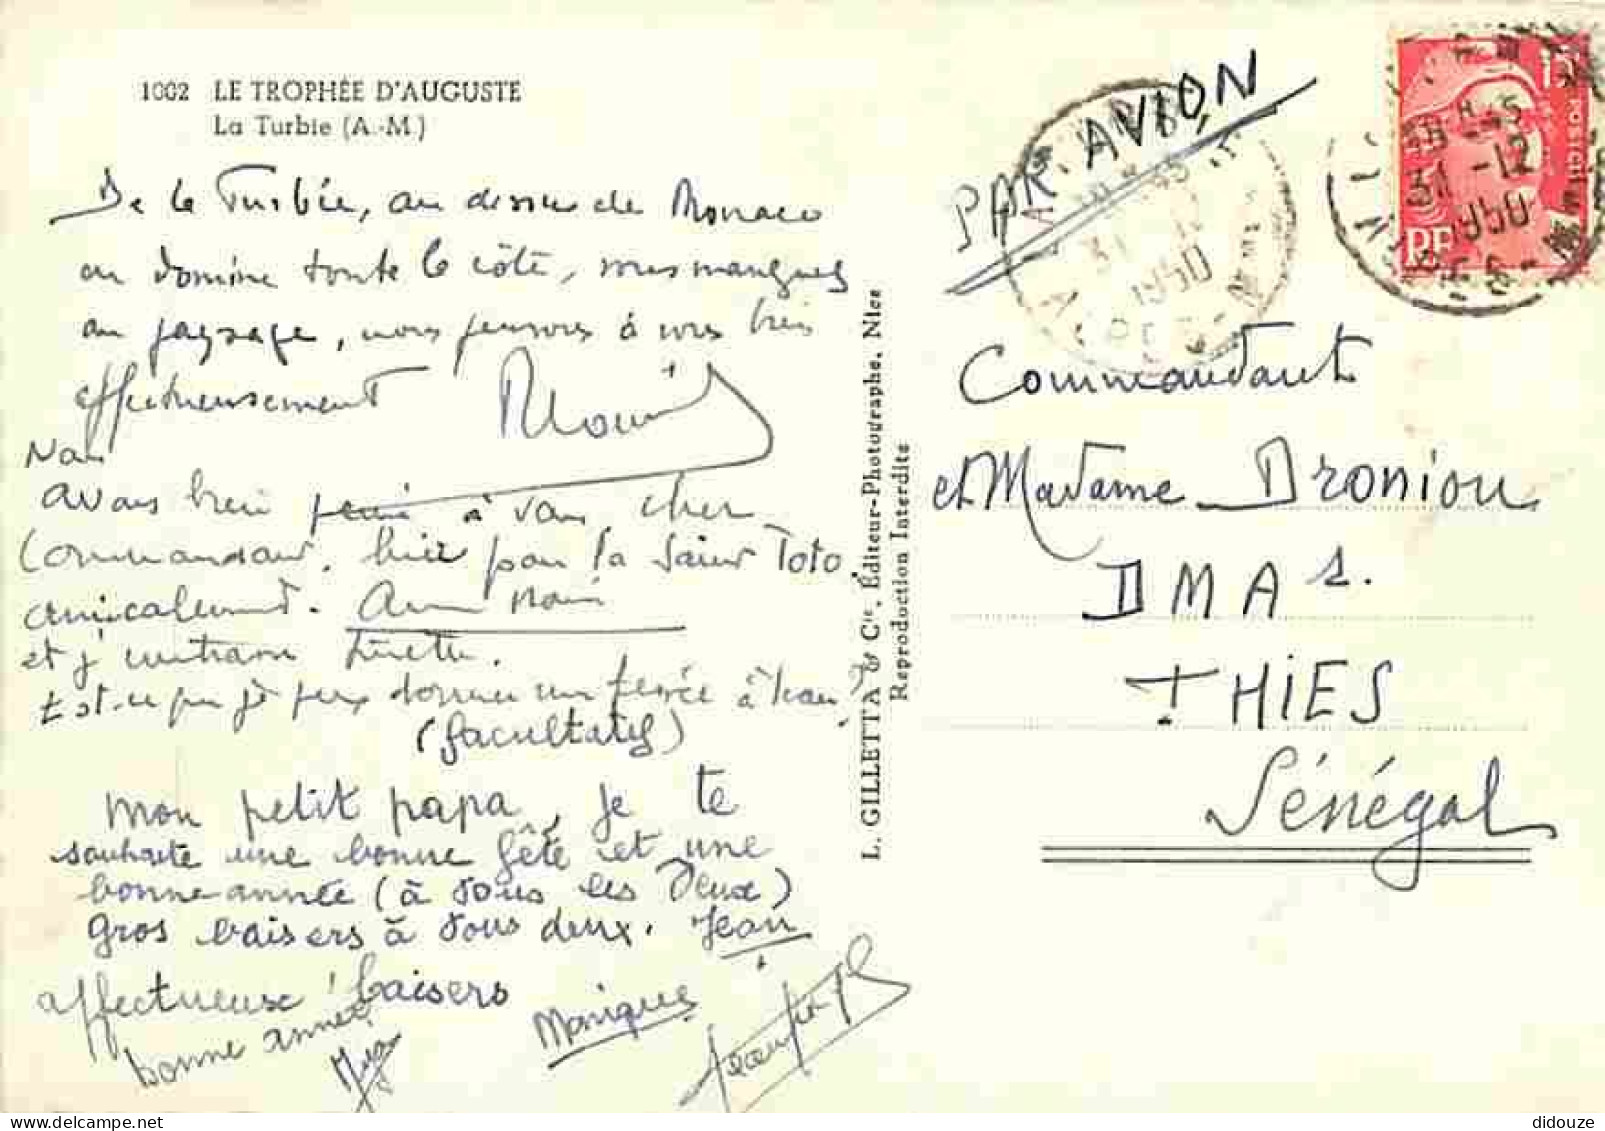 1002 LE TROPHÉE D'AUGUSTE
La Turbie (A.-M.)
De la Turbie, au dessus de Monaco
on domine toute la côte, vous manquez
au paysage, nous pensons à vous bien
affectueusement
Nous
avons bien pensé à vous cher
Commandant, hier pour la Saint Toto
amicalement.
et j'
Est-ce que je peux donner une fessée à Jean?
(facultatif)
Mon petit papa, je te
souhaite une bonne fête et une
bonne année (à vous les deux)
Gros baisers à vous deux. Jean
affectueux baisers
bonne année
Monique
L. GILLETTA & Cie, Éditeur-Photographe, Nice
Reproduction Interdite
PAR AVION
31 1950
15F
POSTES
RF
18H45
31-12
1950
Commandant
et Madame Droniou
DMA
THIES
Sénégal
didouze